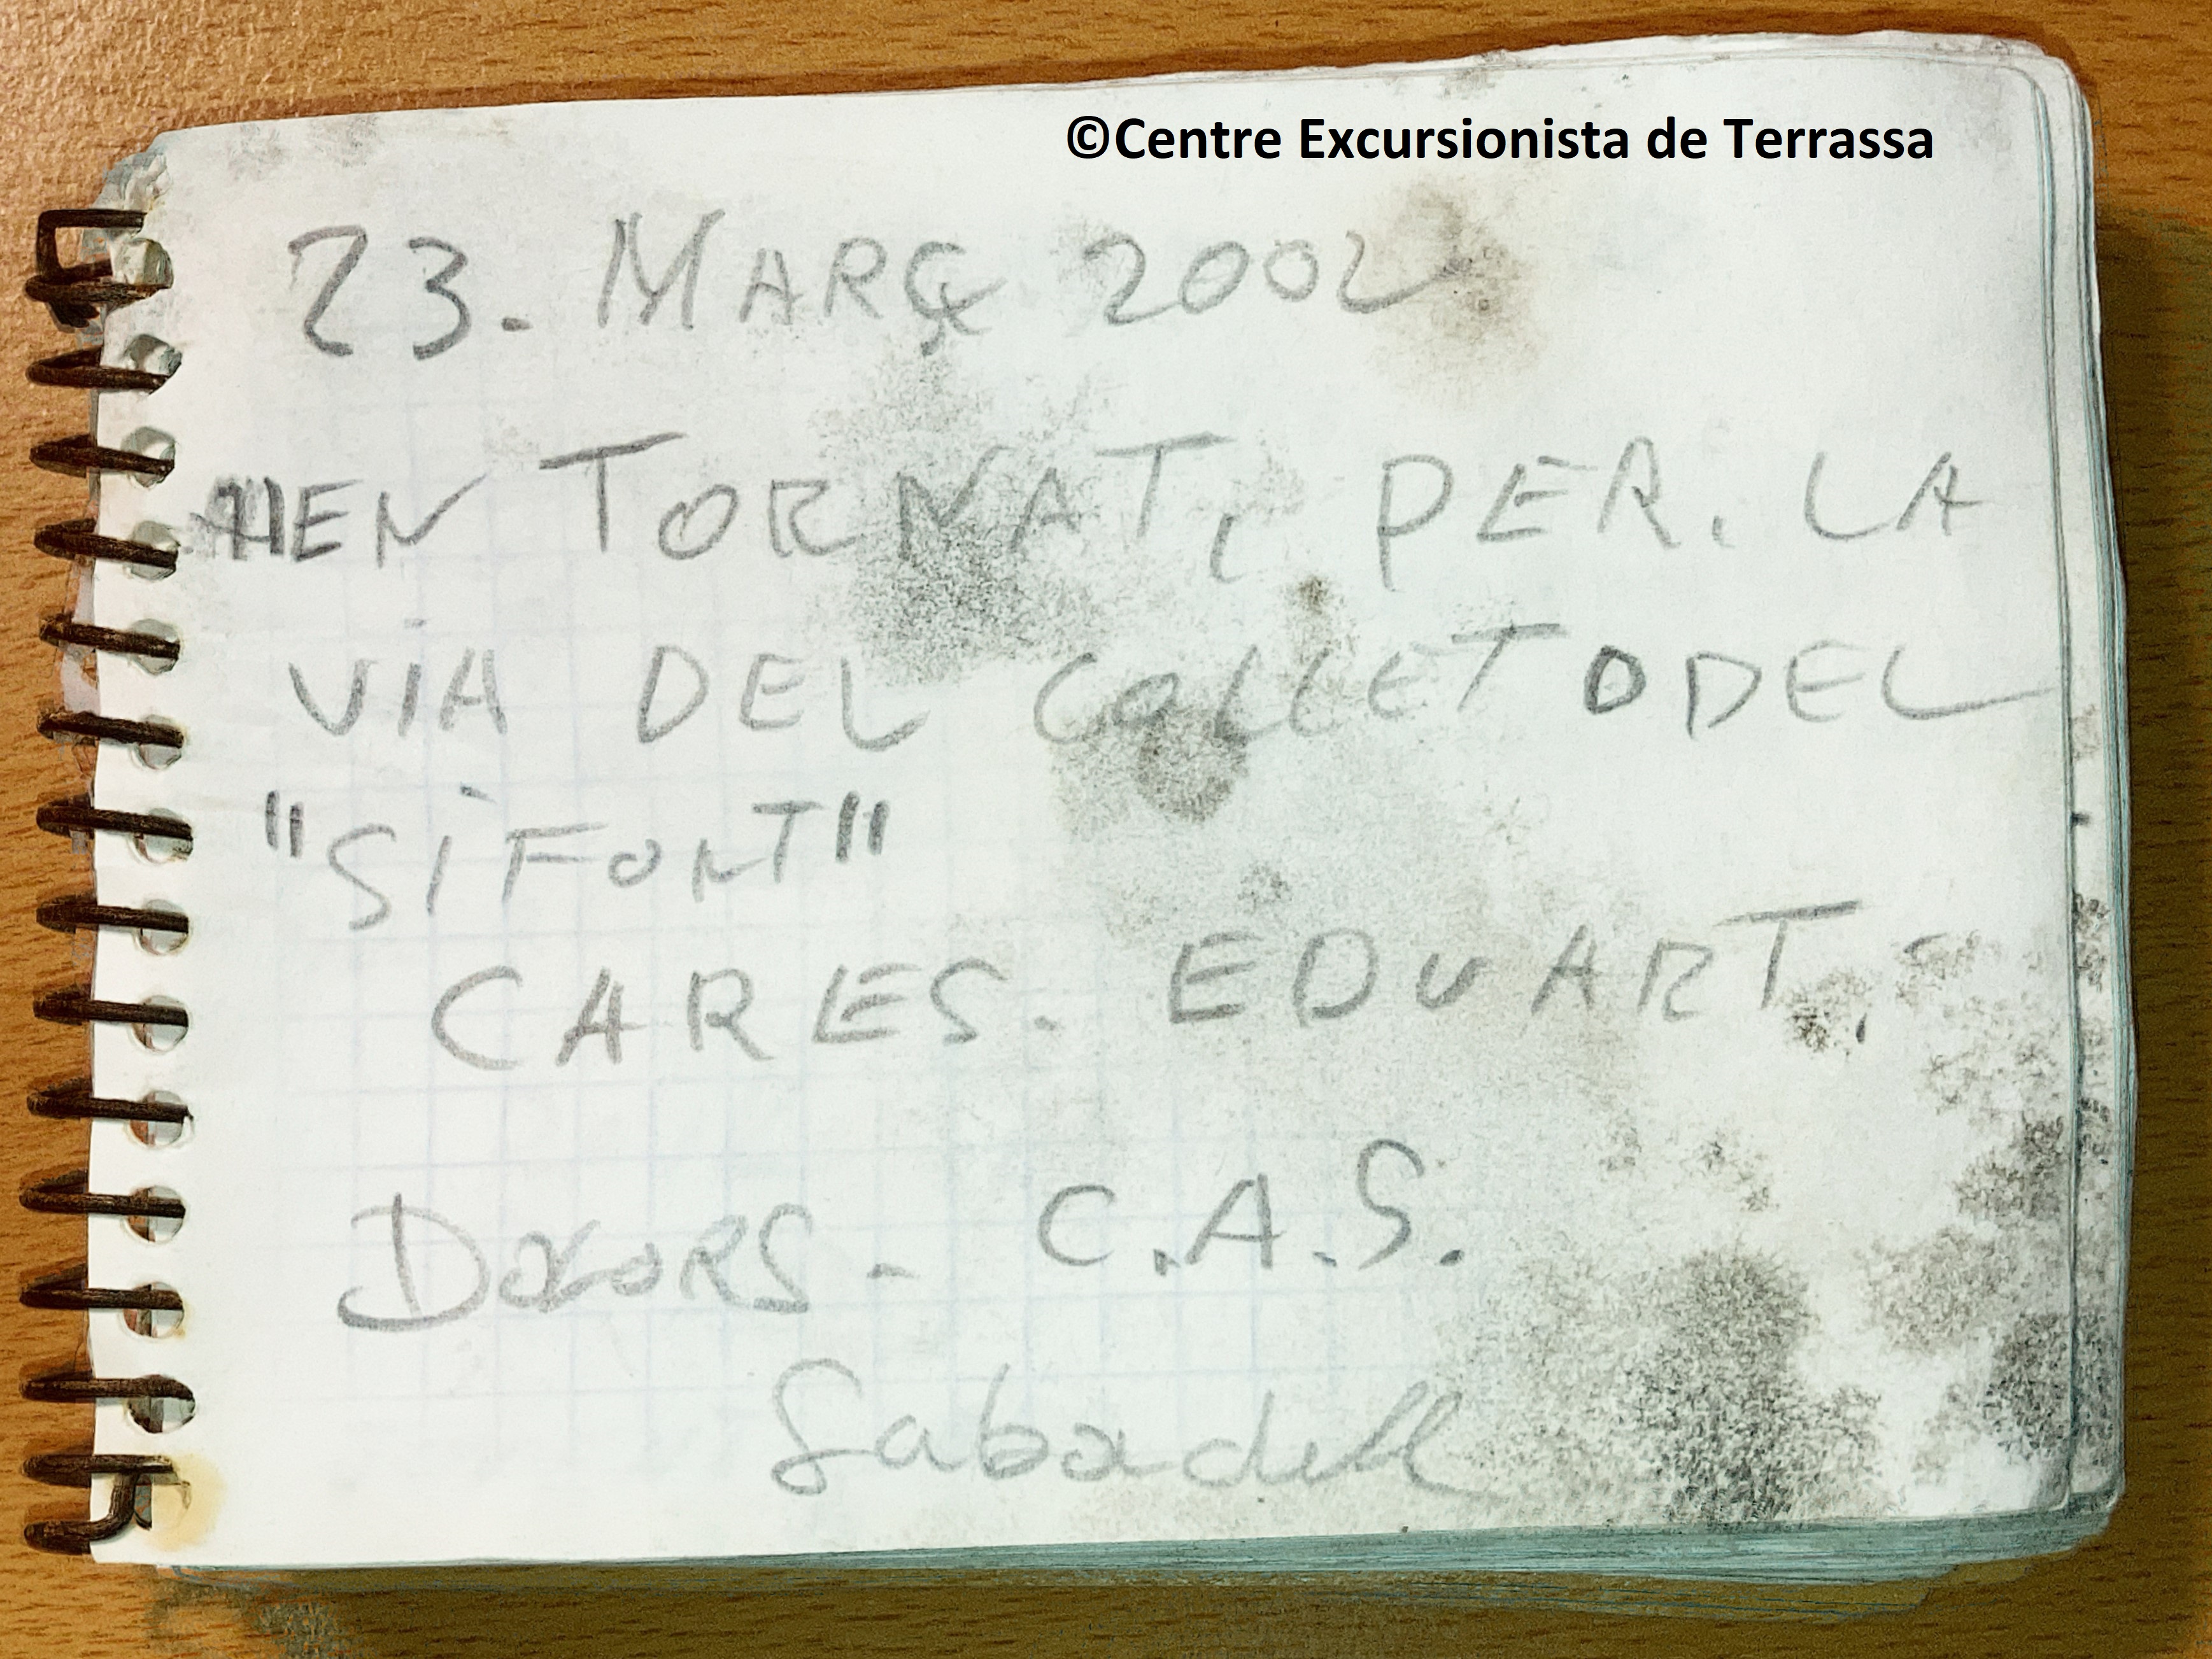 ©Centre Excursionista de Terrassa
23. MARÇ 2002
HEN TORNAT, PER. LA
ViA DEL COLLET O DEL
"SiFONT"
CARES. EDUART.
DOLORS - C.A.S.
Sabadell